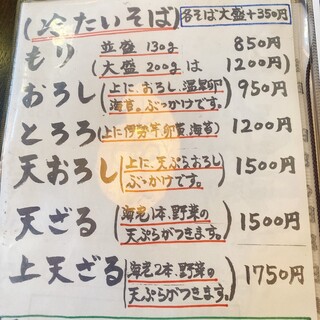 (冷たいそば) 各そば大盛+350円
もり 並盛 130g 850円
(大盛 200gは 1200円)
おろし (上に、おろし、温泉卵 950円
海苔。ぶっかけです。)
とろろ (上に伊勢芋、卵黄、海苔) 1200円
天おろし (上に、天ぷらおろし 1500円
ぶっかけです。)
天ざる (海老1本、野菜の 1500円
天ぷらがつきます。)
上天ざる (海老2本、野菜の 1750円
天ぷらがつきます。)